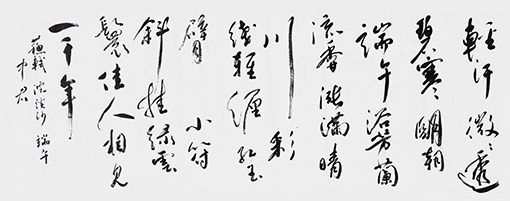 輕汗微々透
碧寒明朝
端午浴芳蘭
流香漲滿晴
川彩
线輕缠红玉
臂小符
斜挂绿雲
鬟佳人相見
一千年
蘇軾浣溪沙端午